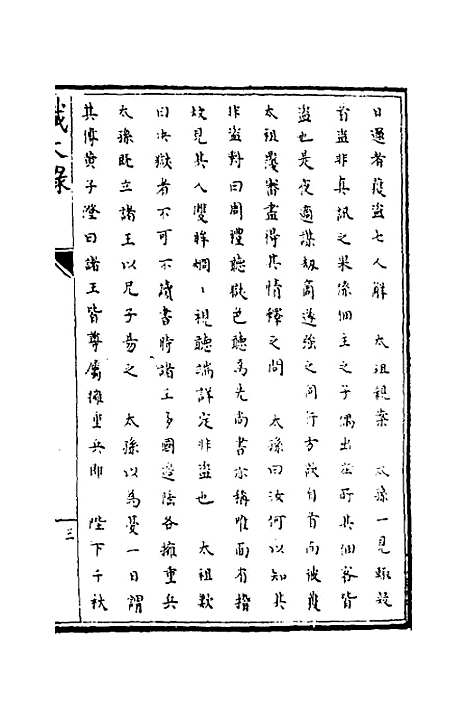 日邏者獲盜七人解 太祖親案 太孫一見輒殺
首盜非真訊之果係佃主之子偶出在所其佃客皆
盜也是夜適謀刼箇遂強之同行方欲自首而被獲
太祖覆審盡得其情釋之問 太孫曰汝何以知其
非盜對曰周禮聽獄色聽為先尚書亦稱惟面有稽
故見其人雙眸炯〻視聽端詳定非盜也 太祖歎
曰決獄者不可不讀書時諸王多國邊陲各擁重兵
太孫既立諸王以兄子易之 太孫以為憂一日謂
其傅黃子澄曰諸王皆尊屬擁重兵即 陛下千秋
大錄
三